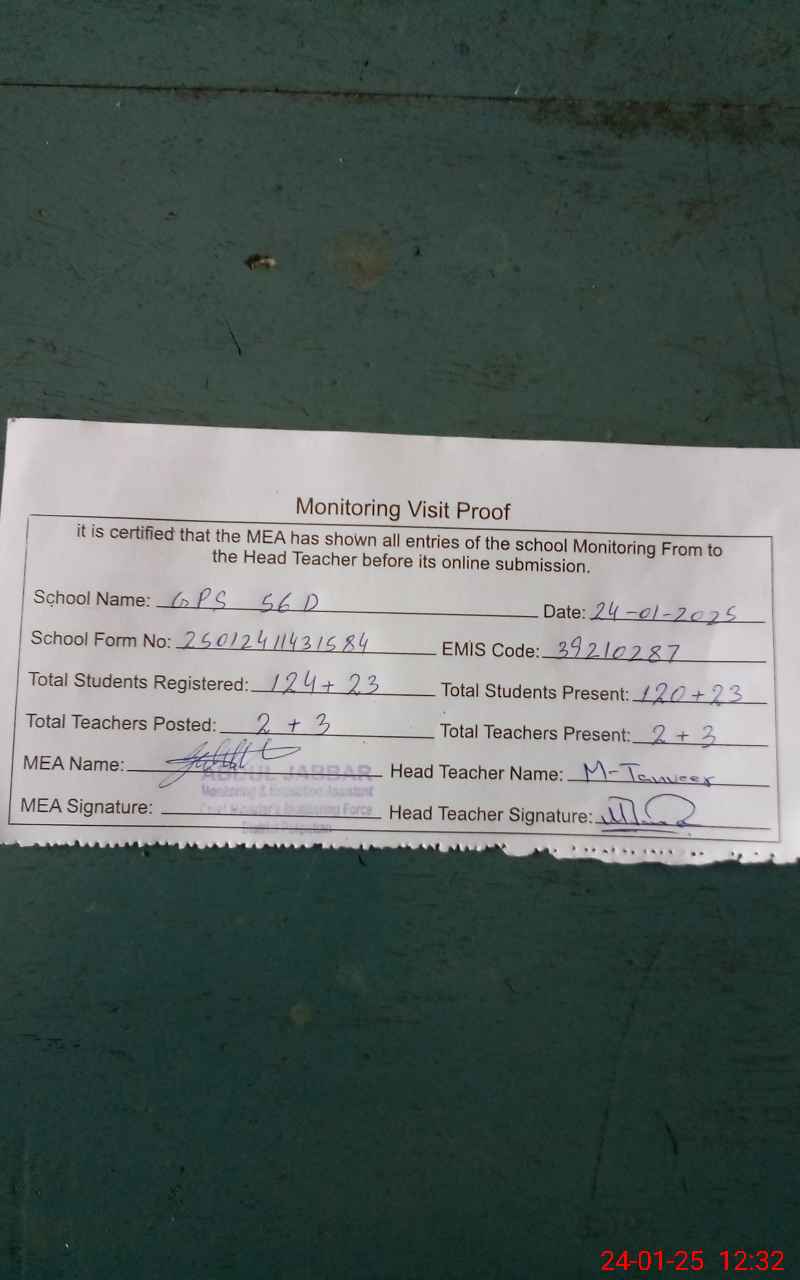 Monitoring Visit Proof
it is certified that the MEA has shown all entries of the school Monitoring From to
the Head Teacher before its online submission.
School Name: GPS 56 D Date: 24-01-2025
School Form No: 25012411431584 EMIS Code: 39210287
Total Students Registered: 124+23 Total Students Present: 120+23
Total Teachers Posted: 2 + 3 Total Teachers Present: 2 + 3
MEA Name: ABDUL JABBAR Head Teacher Name: M-Tanveer
Monitoring & Evaluation Assistant
MEA Signature: Chief Minister's Monitoring Force Head Teacher Signature:
District Pakpattan
24-01-25 12:32